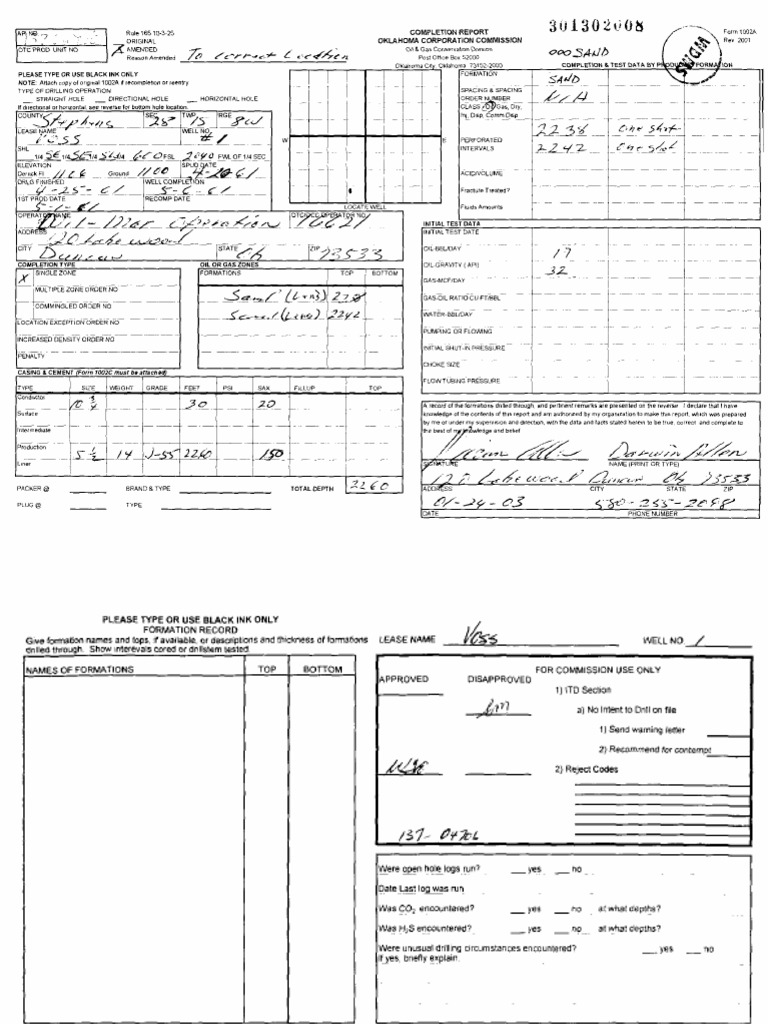 API NO.
OTC PROD. UNIT NO.
Rule 165:10-3-25
ORIGINAL
X AMENDED
Reason Amended To Correct Location
COMPLETION REPORT
OKLAHOMA CORPORATION COMMISSION
Oil & Gas Conservation Division
Post Office Box 52000
Oklahoma City, Oklahoma 73152-2000
301302008
Form 1002A
Rev. 2001
000 SAND
SWGM
PLEASE TYPE OR USE BLACK INK ONLY
NOTE: Attach copy of original 1002A if recompletion or reentry
TYPE OF DRILLING OPERATION
STRAIGHT HOLE DIRECTIONAL HOLE HORIZONTAL HOLE
If directional or horizontal, see reverse for bottom hole location.
COUNTY Stephens SEC 28 TWP 1S RGE 8W
LEASE NAME Voss WELL NO. #1
SHL
1/4 SE 1/4 1/4 1/4 660 FSL 2040 FWL OF 1/4 SEC
ELEVATION
Derrick Fl 1106 Ground 1100 SPUD DATE
DRLG FINISHED 4-25-61 WELL COMPLETION 5-6-61
1ST PROD DATE 5-1-61 RECOMP DATE
W E
LOCATE WELL
OPERATOR NAME Operation OTC/OCC OPERATOR NO
ADDRESS Lakewood
CITY Duncan STATE Ok ZIP 73533
COMPLETION TYPE
X SINGLE ZONE
MULTIPLE ZONE ORDER NO
COMMINGLED ORDER NO
LOCATION EXCEPTION ORDER NO
INCREASED DENSITY ORDER NO
PENALTY
OIL OR GAS ZONES
FORMATIONS TOP BOTTOM
Sand
Sand 2242
CASING & CEMENT (Form 1002C must be attached)
TYPE SIZE WEIGHT GRADE FEET PSI SAX FILLUP TOP
Conductor 10 3/4 30 20
Surface
Intermediate
Production 5 1/2 14 J-55 2260 150
Liner
PACKER @ BRAND & TYPE TOTAL DEPTH 2260
PLUG @ TYPE
COMPLETION & TEST DATA BY PRODUCING FORMATION
FORMATION SAND
SPACING & SPACING
ORDER NUMBER N/A
CLASS: Oil, Gas, Dry,
Inj, Disp, Comm Disp
PERFORATED
INTERVALS
2238 one shot
2242 one shot
ACID/VOLUME
Fracture Treated?
Fluids Amounts
INITIAL TEST DATA
INITIAL TEST DATE
OIL-BBL/DAY 17
OIL-GRAVITY (API) 32
GAS-MCF/DAY
GAS-OIL RATIO CU FT/BBL
WATER-BBL/DAY
PUMPING OR FLOWING
INITIAL SHUT-IN PRESSURE
CHOKE SIZE
FLOW TUBING PRESSURE
A record of the formations drilled through, and pertinent remarks are presented on the reverse. I declare that I have
knowledge of the contents of this report and am authorized by my organization to make this report, which was prepared
by me or under my supervision and direction, with the data and facts stated herein to be true, correct and complete to
the best of my knowledge and belief.
SIGNATURE NAME (PRINT OR TYPE)
Lakewood Duncan Ok 73533
ADDRESS CITY STATE ZIP
01-24-03 580-255-2098
DATE PHONE NUMBER
PLEASE TYPE OR USE BLACK INK ONLY
FORMATION RECORD
Give formation names and tops, if available, or descriptions and thickness of formations
drilled through. Show intervals cored or drillstem tested.
NAMES OF FORMATIONS TOP BOTTOM
LEASE NAME Voss WELL NO. 1
FOR COMMISSION USE ONLY
APPROVED DISAPPROVED
1) ITD Section
a) No Intent to Drill on file
1) Send warning letter
2) Recommend for contempt
2) Reject Codes
137-04706
Were open hole logs run? yes no
Date Last log was run
Was CO2 encountered? yes no at what depths?
Was H2S encountered? yes no at what depths?
Were unusual drilling circumstances encountered? yes no
If yes, briefly explain.